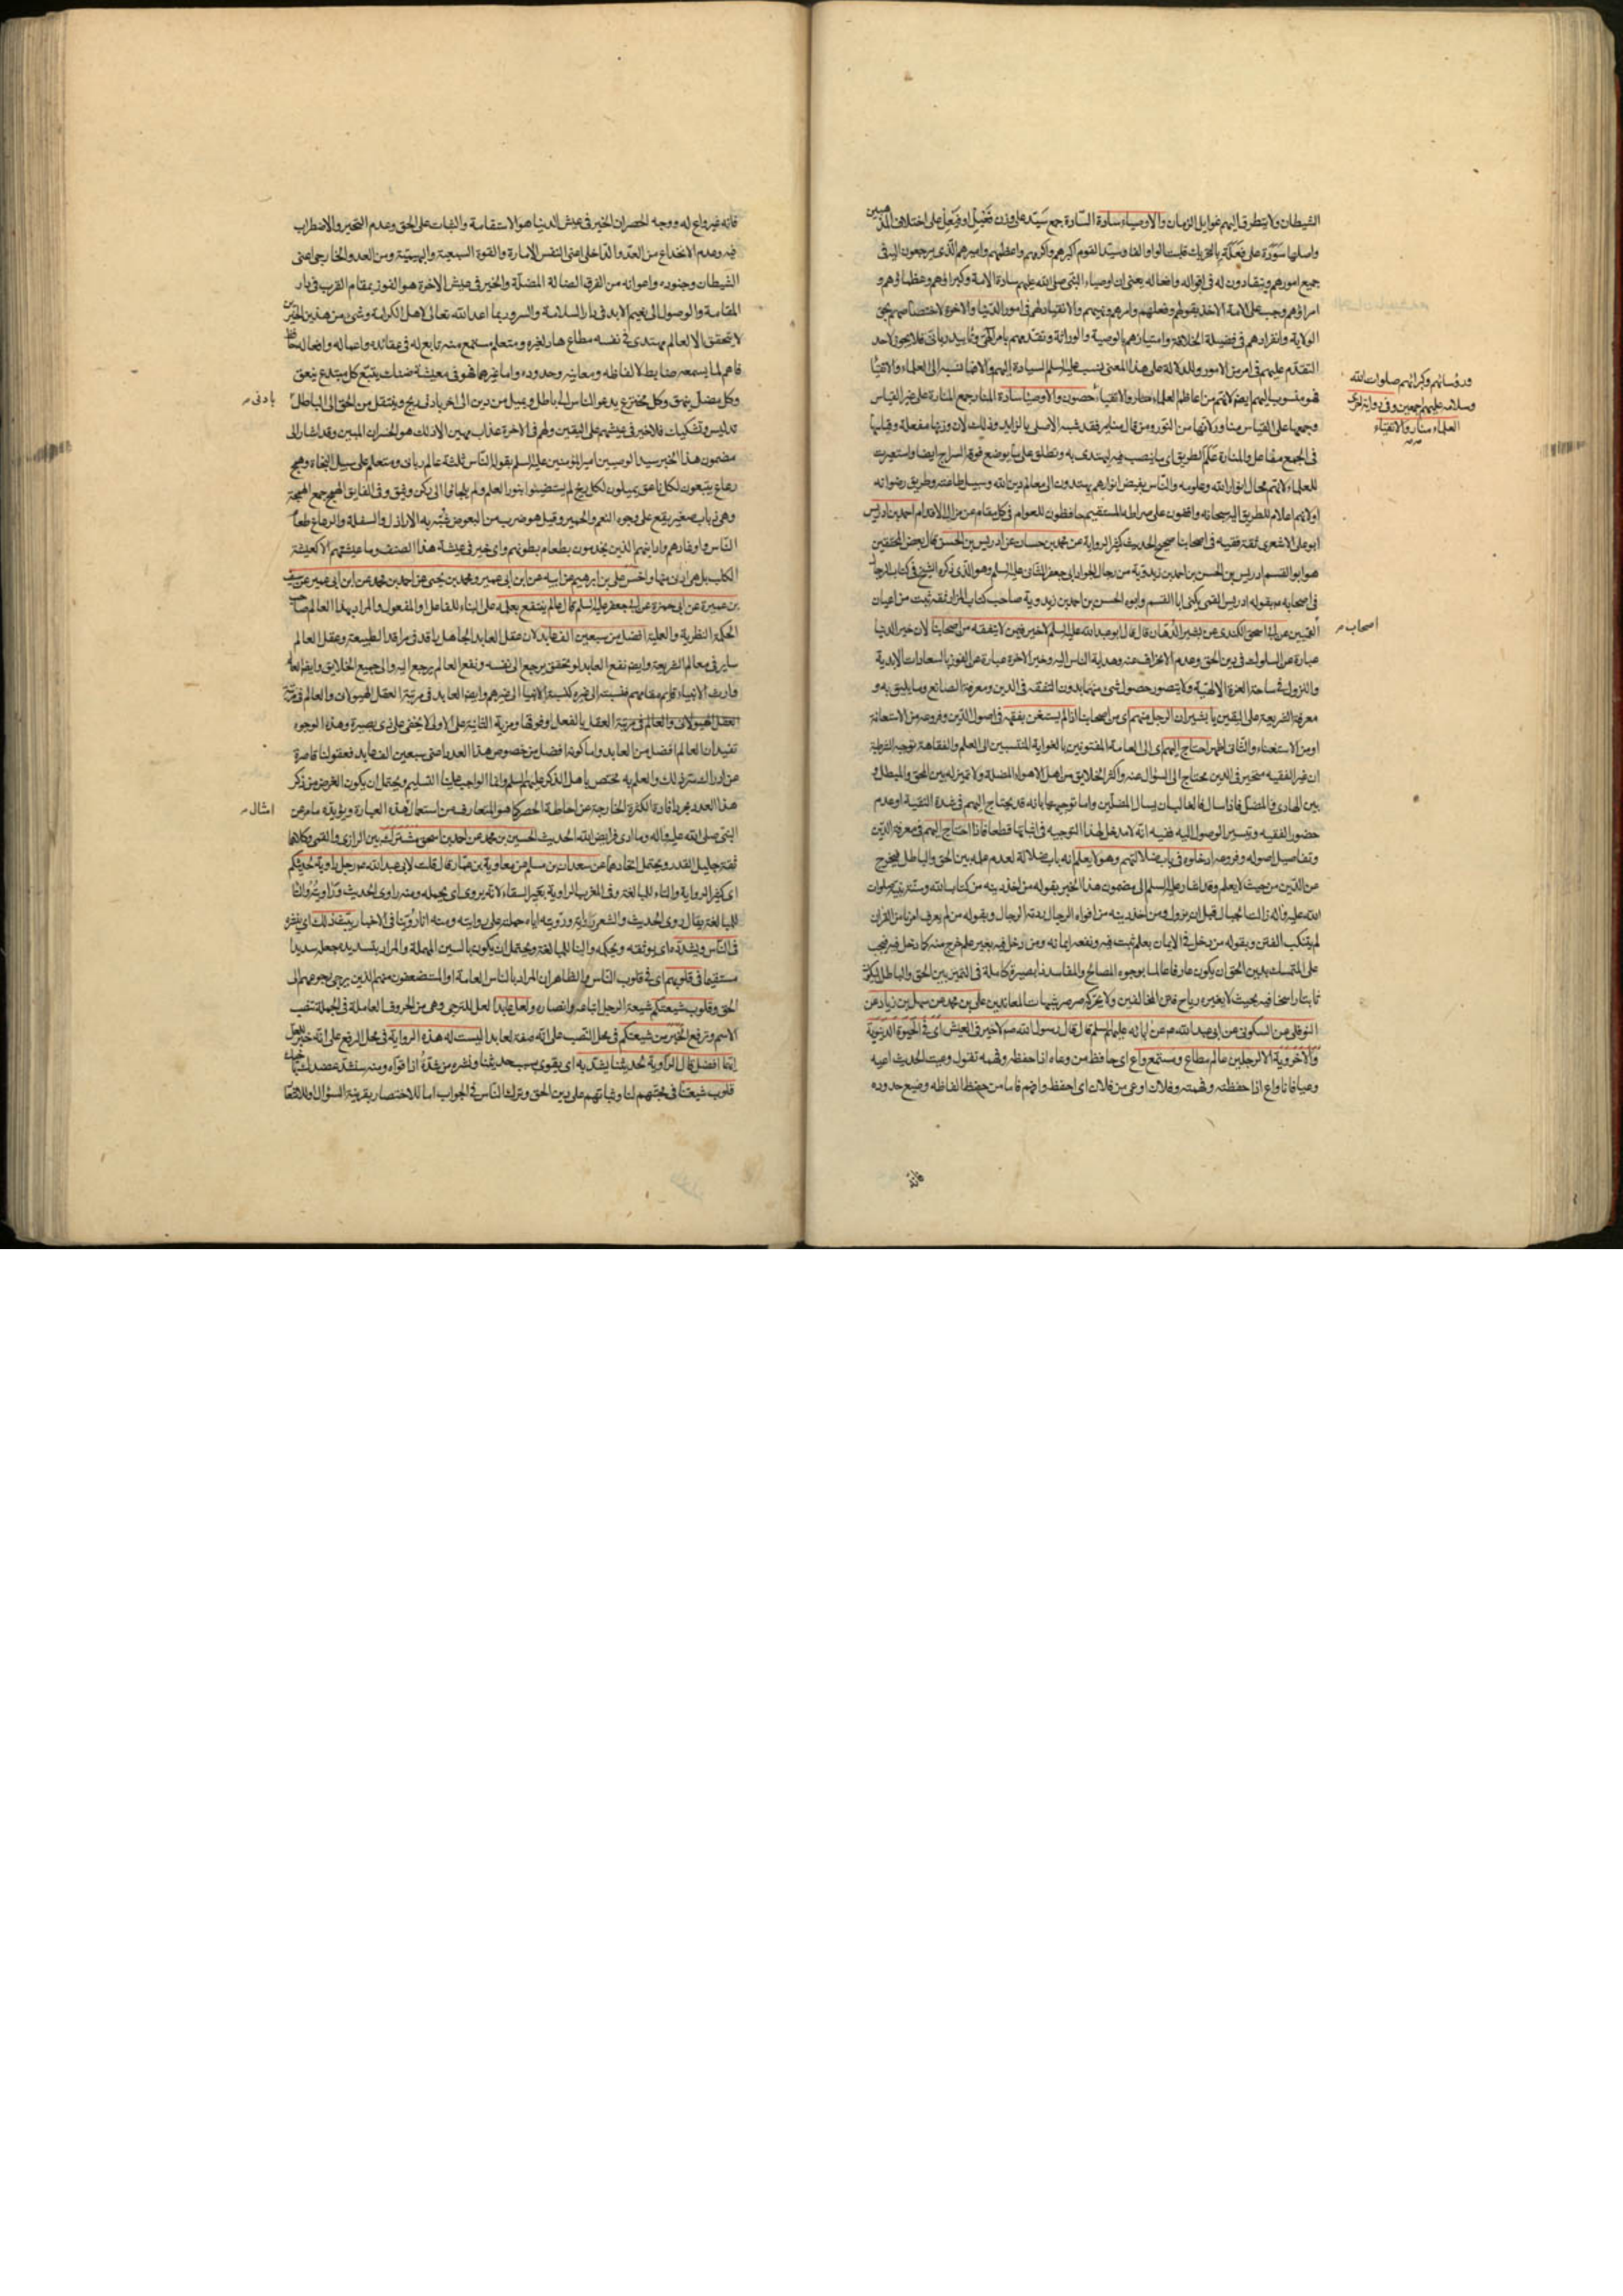 الشيطان ولا يتطرق اليهم غوايل الزمان والاوصياء سادة السّادة جمع سَيّد على وزن فَعْيِل او فَيْعِل على اختلاف المذهبين
واصلها سَوَدَة على فَعَلَة بالتحريك قلبت الواو الفا وسيّد القوم اكبرهم واكرمهم واعظمهم واميرهم الذي يرجعون اليه في
جميع امورهم وينقادون له في اقواله وافعاله يعني ان اوصياء النبي صلى الله عليهم سادة الامة وكبراؤهم وعظماؤهم و
امراؤهم وجب على الامة الاخذ بقولهم وفعلهم وامرهم ونهيهم والانقياد لهم في امور الدنيا والاخرة لاختصاصهم بحق
الولاية وانفرادهم في فضيلة الخلافة وامتيازهم بالوصية والوراثة وتقدمهم بامر الهي وتاييد رباني فلا يجوز لاحد
التقدم عليهم في امر من الامور وللدلالة على هذا المعنى نسب عليه السلم السيادة اليهم والا فما نسبه الى العلماء والاتقياء
فهو منسوب اليهم ايضا لانهم من اعاظم العلماء والاتقياء حصون والاوصيا سادة المنار جمع المنارة على غير القياس
وجمعها على القياس مناور لانها من النور ومن قال منابر فقد شبه الاصلي بالزايد وذلك لان وزنها مفعلة وقياسها
في الجمع مفاعل والمنارة عَلَم الطريق اي ما ينصب فيه ليهتدى به وتطلق على ما يوضع فوقه السراج ايضا واستعيرت
للعلماء لانهم محال انوار الله وعلومه والناس بفيض انوارهم يهتدون الى معالم دين الله وسبيل طاعته وطريق رضوانه
او لانهم اعلام للطريق اليه سبحانه واقفون على صراطه المستقيم حافظون للعوام في كل مقام عن مزال الاقدام احمد بن ادريس
ابو علي الاشعري ثقة فقيه في اصحابنا صحيح الحديث كثير الرواية عن محمد بن حسان عن ادريس بن الحسن قال بعض المحققين
هو ابو القسم ادريس بن الحسن بن احمد بن زيدوية من رجال الجواد ابي جعفر الثاني عليه السلم وهو الذي ذكره الشيخ في كتاب الرجال
في اصحابه بقوله ادريس القمي يكنى ابا القسم وابوه الحسن بن احمد بن زيدوية صاحب كتاب المزار ثقة ثبت من اعيان
القميين عن ابي اسحق الكندي عن بشير الدهان قال قال ابو عبد الله عليه السلم لا خير فيمن لا يتفقه من اصحابنا لان خير الدنيا
عبارة عن السلوك في دين الحق وعدم الانحراف عنه وهداية الناس اليه وخير الاخرة عبارة عن الفوز بالسعادات الابدية
والنزول في ساحة العزة الالهية ولا يتصور حصول شيء منهما بدون التفقه في الدين ومعرفة الصانع وما يليق به و
معرفة الشريعة على اليقين يا بشير ان الرجل منهم اي من اصحابنا اذا لم يستغن بفقهه في اصول الدين وفروعه من الاستعانة
او من الاستغناء والثاني اظهر احتاج اليهم اي الى العامة المفتونين بالغواية المنتسبين الى العلم والفقاهة توجيه الشرطية
ان غير الفقيه متحير في الدين محتاج الى السؤال عنه واكثر الخلايق من اهل الاهواء المضلة ولا تميز له بين المحق والمبطل و
بين الهادي والمضل فاذا سال فالغالب ان يسال المضلين واما توجيهها بانه قد يحتاج اليهم في مدة التقية او عدم
حضور الفقيه وتيسر الوصول اليه ففيه انه لا مدخل لهذا التوجيه في اثباتها قطعا فاذا احتاج اليهم في معرفة الدين
وتفاصيل اصوله وفروعه ادخلوه في باب ضلالتهم وهو لا يعلم انه باب ضلالة لعدم علمه بين الحق والباطل فيخرج
عن الدين من حيث لا يعلم وقد اشار عليه السلم الى مضمون هذا الخبر بقوله من اخذ دينه من كتاب الله وسنة نبيه صلوات
الله عليه واله زالت الجبال قبل ان يزول ومن اخذ دينه من افواه الرجال ردته الرجال وبقوله من لم يعرف امرنا من القران
لم يتنكب الفتن وبقوله من دخل في الايمان بعلم ثبت فيه ونفعه ايمانه ومن دخل فيه بغير علم خرج منه كما دخل فيه فيجب
على المتمسك بدين الحق ان يكون عارفا عالما بوجوه المصالح والمفاسد ذا بصيرة كاملة في التميز بين الحق والباطل ليكون
ثابتا راسخا فيه بحيث لا يغيره رياح المخالفين ولا يحركه صرصر شبهات المعاندين علي بن محمد عن سهل بن زياد عن
النوفلي عن السكوني عن ابي عبد الله ع عن ابائه عليهم السلم قال قال رسول الله ص لا خير في العيش اي في الحيوة الدنيوية
والاخروية الا لرجلين عالم مطاع ومستمع واع اي حافظ من وعاه اذا حفظه وفهمه تقول وعيت الحديث اعيه
وعيا فانا واع اذا حفظته وفهمته وفلان اوعى من فلان اي احفظ وافهم فاما من حفظ الفاظه وضيع حدوده
ورؤسائهم وكبرائهم صلوات الله
وسلامه عليهم اجمعين وفي رواية اخرى
العلماء منار والاتقياء
اصحاب
فانه غير واع له ووجه انحصار الخير في عيش الدنيا هو الاستقامة والثبات على الحق وعدم التحير والاضطراب
فيه وعدم الانخداع من العدو الداخلي اعني النفس الامارة والقوة السبعية والبهيمية ومن العدو الخارجي اعني
الشيطان وجنوده واعوانه من الفرق الضالة المضلة والخير في عيش الاخرة هو الفوز بمقام القرب في دار
المقامة والوصول الى نعيم الابد في دار السلامة والسرور بما اعد الله تعالى لاهل الكرامة وشيء من هذين الخيرين
لا يتحقق الا لعالم مهتدي في نفسه مطاع هاد لغيره ومتعلم مستمع منه تابع له في عقائده واعماله وافعاله حافظ
فاهم لما يسمعه ضابط لالفاظه ومعانيه وحدوده واما غيرهما فهو في معيشة ضنك يتبع كل مبتدع ينعق
وكل مضل ينهق وكل مخترع يدعو الناس الى باطل ويميل من دين الى اخر بادنى ريح وينتقل من الحق الى الباطل
تدليس وتشكيك فلا خير في عيشهم على اليقين ولهم في الاخرة عذاب مهين الا ذلك هو الخسران المبين وقد اشار الى
مضمون هذا الخبر سيد الوصيين امير المؤمنين عليه السلم بقوله الناس ثلثة عالم رباني ومتعلم على سبيل النجاة وهمج
رعاع يتبعون لكل ناعق يميلون لكل ريح لم يستضيئوا بنور العلم ولم يلجائوا الى ركن وثيق وفي الفايق الهمج جمع الهمجة
وهي ذباب صغير يقع على وجوه النعم والحمير وقيل هو ضرب من البعوض شبه به الاراذل والسفلة والرعاع طغام
الناس واوغادهم وادانيهم الذين يخدمون بطعام بطونهم واي خير في عيشة هذا الصنف وما عيشتهم الا كعيشة
الكلاب بل هي ادون منها واخس علي بن ابرهيم عن ابيه عن ابن ابي عمير ومحمد بن يحيى عن احمد بن محمد عن ابن ابي عمير عن سيف
بن عميرة عن ابي حمزة عن ابي جعفر عليه السلم قال عالم ينتفع بعلمه على البناء للفاعل او المفعول والمراد بهذا العالم صاحب
الحكمة النظرية والعملية افضل من سبعين الف عابد لان عقل العابد الجاهل راقد في مراقد الطبيعة وعقل العالم
ساير في معالم الشريعة وايضا نفع العابد لو تحقق يرجع الى نفسه ونفع العالم يرجع اليه والى جميع الخلايق وايضا العالم
وارث الانبياء قايم مقامهم فنسبته الى غيره كنسبة الانبيا الى غيرهم وايضا العابد في مرتبة العقل الهيولاني والعالم في مرتبة
العقل الهيولاني والعالم في مرتبة العقل بالفعل او فوقها ومزية الثانية على الاولى لا يخفى على ذي بصيرة وهذه الوجوه
تفيد ان العالم افضل من العابد واما كونه افضل من خصوص هذا العدد اعني سبعين الف عابد فعقولنا قاصرة
عن ادراك سر ذلك والعلم به مختص باهل الذكر عليهم السلم وانما الواجب علينا التسليم ويحتمل ان يكون الغرض من ذكر
هذا العدد مجرد افادة الكثرة الخارجة عن احاطة الحصر كما هو المتعارف من استعمال هذه العبارة ويؤيده ما مر عن
النبي صلى الله عليه واله وما ادى فرايض الله الحديث الحسين بن محمد عن احمد بن اسحق مشترك بين الرازي والقمي وكلاهما
ثقة جليل القدر ويحتمل اتحادهما عن سعدان بن مسلم عن معاوية بن عمار قال قلت لابي عبد الله ع رجل راوية لحديثكم
اي كثير الرواية والتاء للمبالغة وفي المغرب الراوية بعير السقاء لانه يروي اي يحمله ومنه راوي الحديث وراويته والتا
للمبالغة يقال روى الحديث والشعر رواية ورويته اياه حملته على روايته ومنه انا روينا في الاخبار يبث ذلك اي ينشره
في الناس ويشدّده اي يوثقه ويحكمه والتا للمبالغة ويحتمل ان يكون بالسين المهملة والمراد بتسديده جعله سديدا
مستقيما في قلوبهم اي في قلوب الناس والظاهر ان المراد بالناس العامة او المستضعفون منهم الذين يرجى رجوعهم الى
الحق وقلوب شيعتكم شيعة الرجل اتباعه وانصاره ولعل عابدا لعل للترجي وهي من الحروف العاملة في الجملة تنصب
الاسم وترفع الخبر من شيعتكم في محل النصب على انه صفة لعابدا ليست له هذه الرواية في محل الرفع على انه خبر لعل
ايهما افضل قال الراوية لحديثنا يشد به اي يقوي بسبب حديثنا ونشره من شده اذا قواه ومنه سنشد عضدك باخيك
قلوب شيعتنا في محبتهم لنا وثباتهم على دين الحق وترك الناس في الجواب اما للاختصار بقرينة السؤال او للاشعار
بادنى
امثال